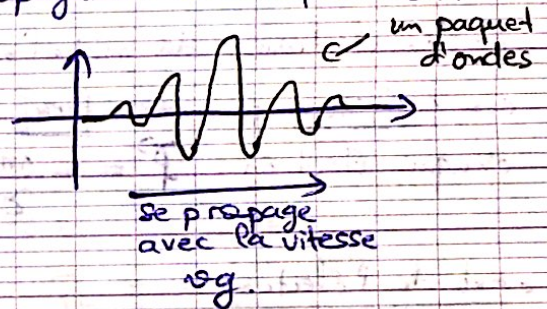 un paquet
d'ondes
se propage
avec la vitesse
vg.